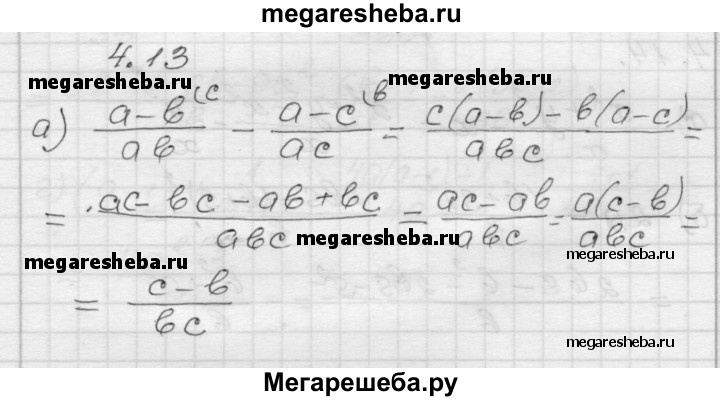 megaresheba.ru
4.13
megaresheba.ru megaresheba.ru
а) (a-b)/(ab) \c - (a-c)/(ac) \b = (c(a-b)-b(a-c))/(abc) =
= (ac-bc-ab+bc)/(abc) = (ac-ab)/(abc) = (a(c-b))/(abc) =
megaresheba.ru megaresheba.ru
megaresheba.ru
= (c-b)/(bc)
megaresheba.ru
Мегарешеба.ру